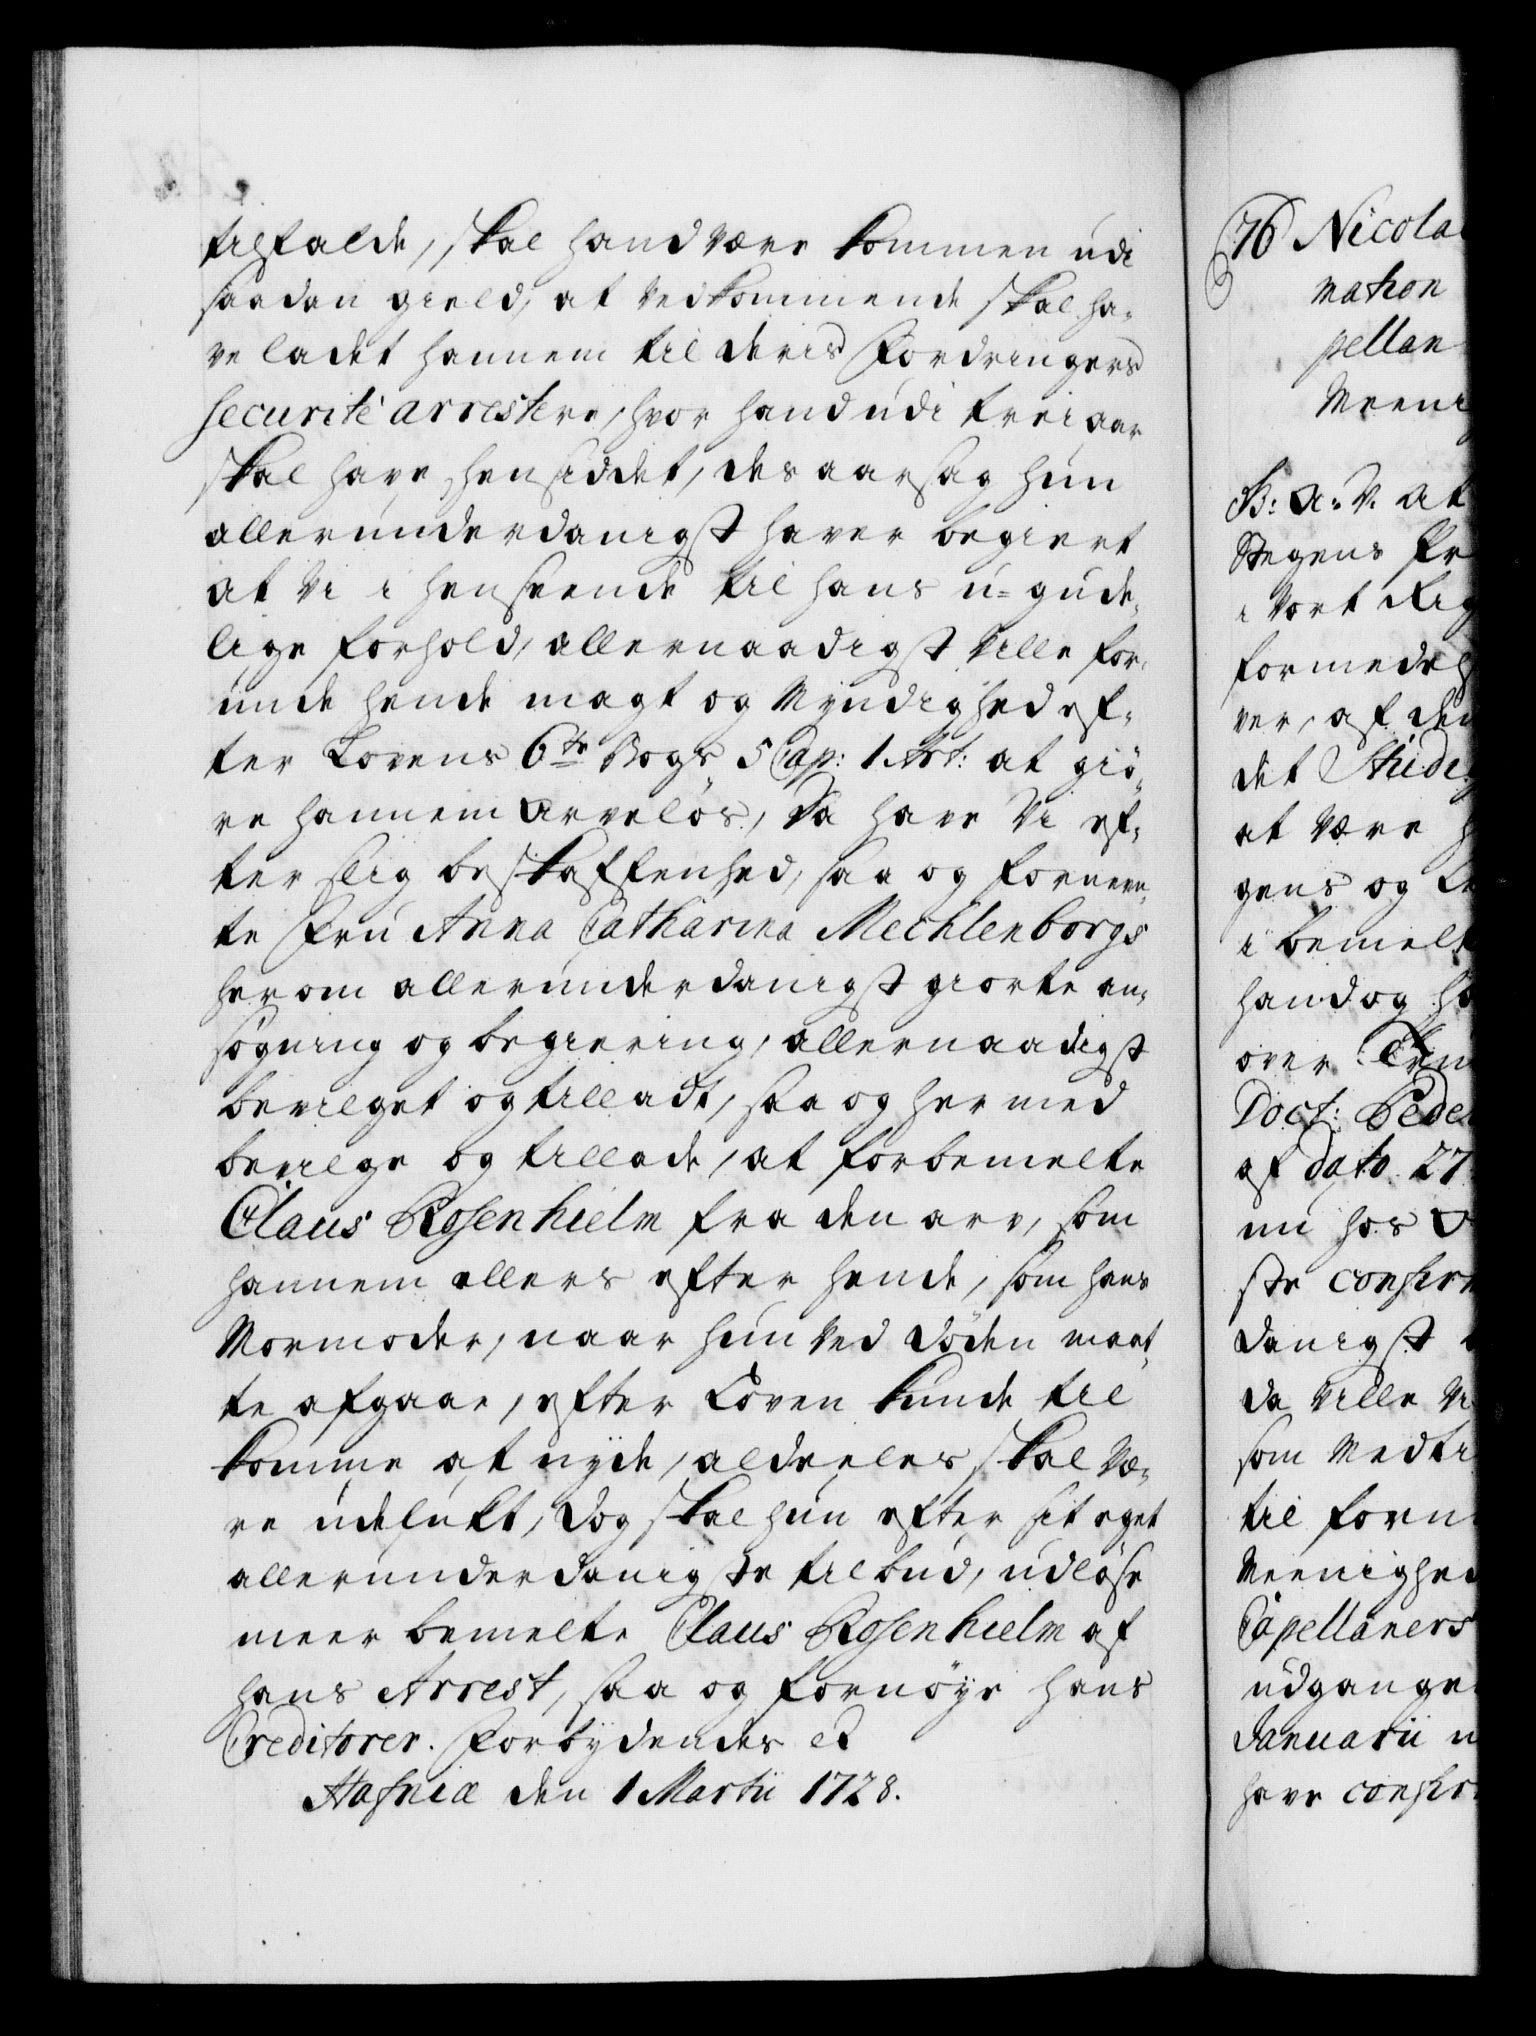 tilfalde, skal hand være kommen udi
saadan gield, at vedkommende skal ha-
ve ladet hannem til deris Fordringers
securité arrestere, hvor hand udi trei aar
skal have hensiddet, des aarsag hun
allerunderdanigst haver begiert
at Vi i henseende til hans u-gude-
lige forhold, allernaadigst ville for-
unde hende magt og Myndighed ef-
ter Lovens 6te Bogs 5 Cap: 1 Art: at giö-
re hannem arvelös, Da have Vi ef-
ter slig beskaffenhed, saa og fornevn-
te Fru Anna Catharina Mechlenborgs
herom allerunderdanigst giorte an-
sögning og begiering, allernaadigst
bevilget og tilladt, saa og hermed
bevilge og tillade, at forbemelte
Claus Rosenhielm fra den arv, som
hannem ellers efter hende, som hans
Mormoder, naar hun ved Döden maat-
te afgaae, efter Loven kunde til
komme at nyde, aldeeles skal væ-
re udelukt, Dog skal hun efter sit eget
allerunderdanigste tilbud, udlöse
meer bemelte Claus Rosenhielm af
hans Arrest, saa og fornöye hans
Creditorer. Forbydendes et
Hafniæ den 1 Martii 1728.
76 Nicolai
mation
pellan
Meeni
B: A: V. At
Stegens Fr
i Vort Rig
formedels
ver, af den
det Stude
at være
gens og
i bemelt
hand og ha
over
Doct: Peder
af dato 27
nu hos
ste confir
danigst
da ville Vi
som Medti
til forn
Meenighed
Capellaners
udgangen
Januarii
have confir